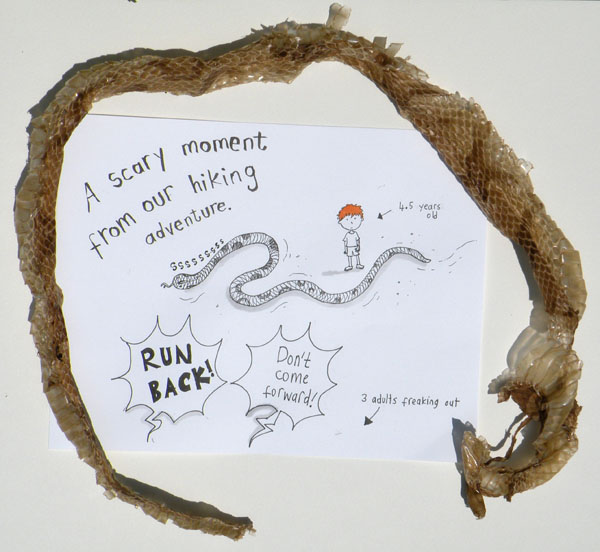 A scary moment
from our hiking
adventure.
4.5 years
old
sssssssss
RUN
BACK!
Don't
come
forward!
3 adults freaking out